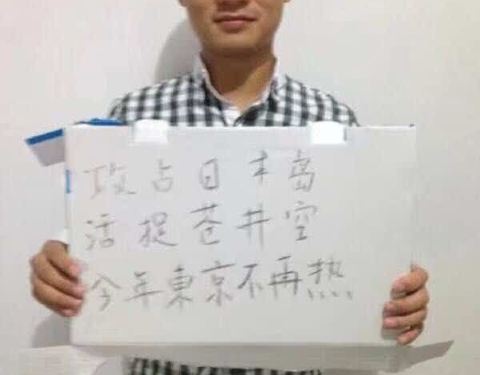 攻占日本岛
活捉苍井空
今年東京不再热